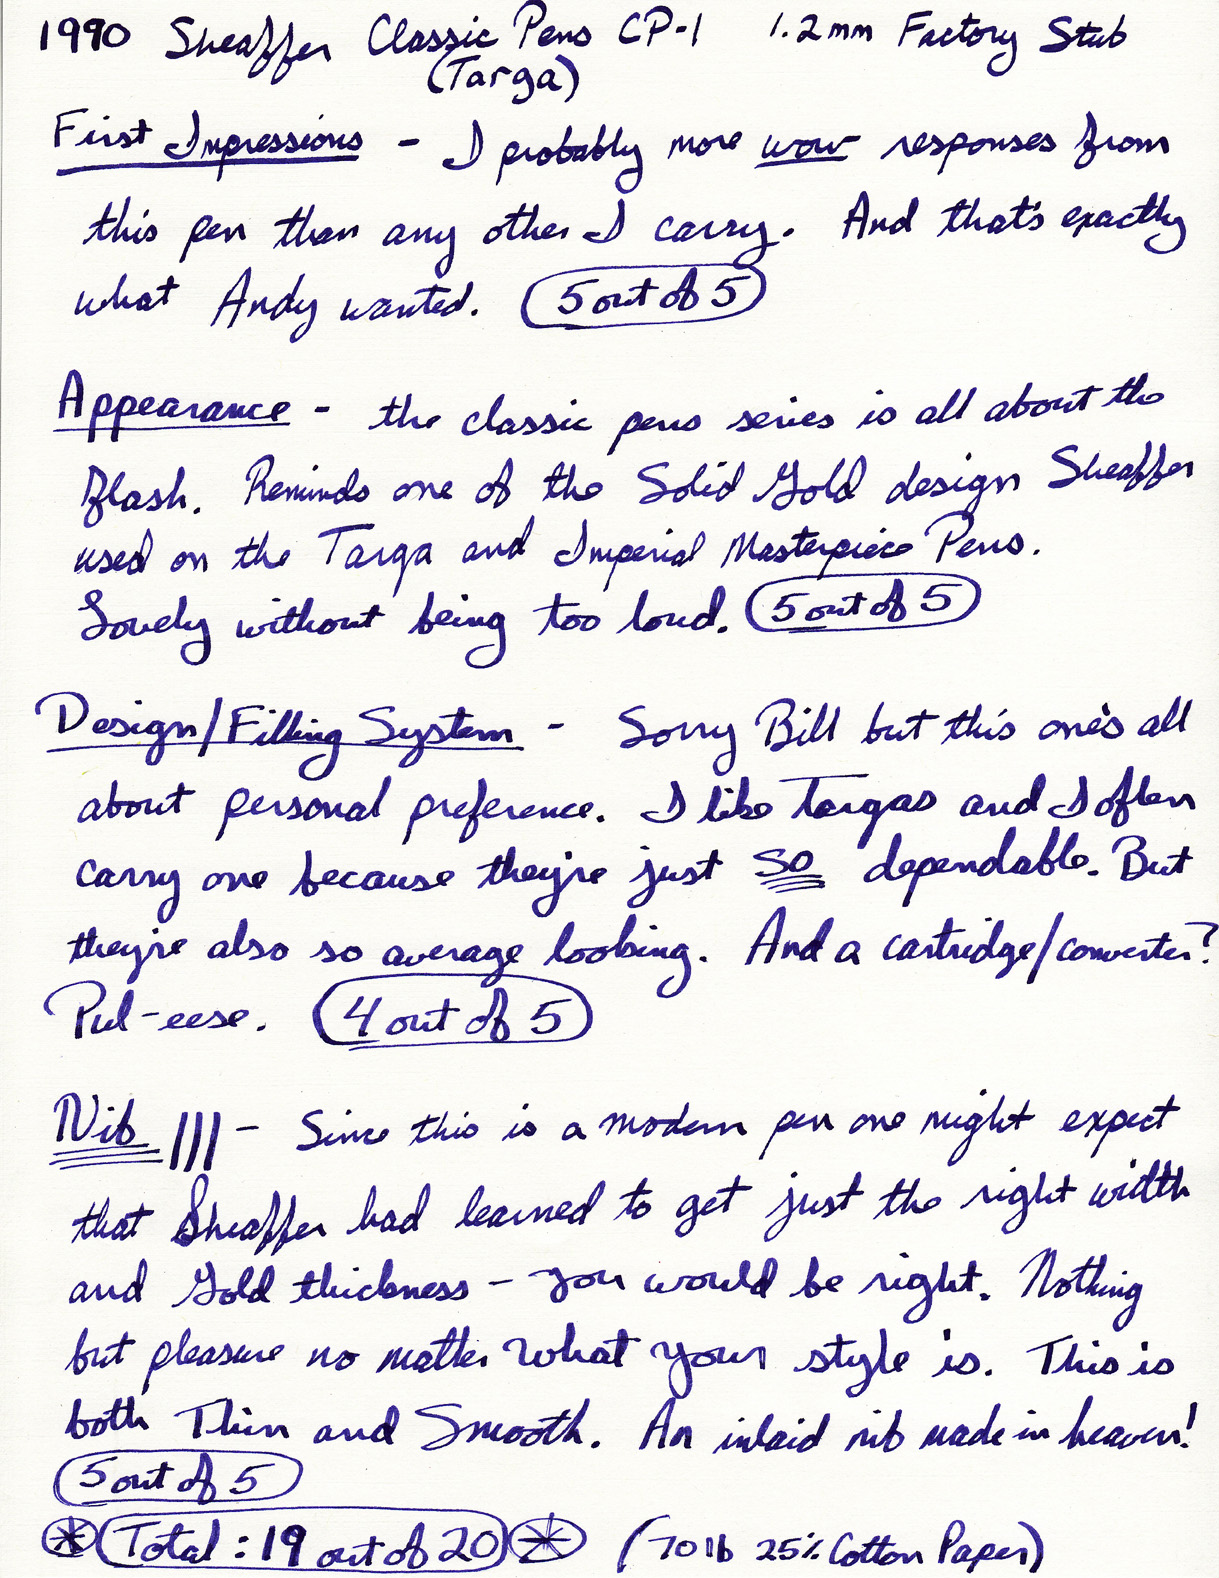 1990 Sheaffer Classic Pens CP-1 1.2mm Factory Stub
(Targa)
First Impressions - I probably more wow responses from
this pen than any other I carry. And that's exactly
what Andy wanted. 5 out of 5
Appearance - the classic pens series is all about the
flash. Reminds one of the Solid Gold design Sheaffer
used on the Targa and Imperial Masterpiece Pens.
Lovely without being too loud. 5 out of 5
Design/Filling System - Sorry Bill but this one's all
about personal preference. I like Targas and I often
carry one because they're just so dependable. But
they're also so average looking. And a cartridge/converter?
Pul-eese. 4 out of 5
Nib ||| - Since this is a modern pen one might expect
that Sheaffer had learned to get just the right width
and Gold thickness - you would be right. Nothing
but pleasure no matter what your style is. This is
both Thin and Smooth. An inlaid nib made in heaven!
5 out of 5
Total: 19 out of 20 (70 lb 25% Cotton Paper)